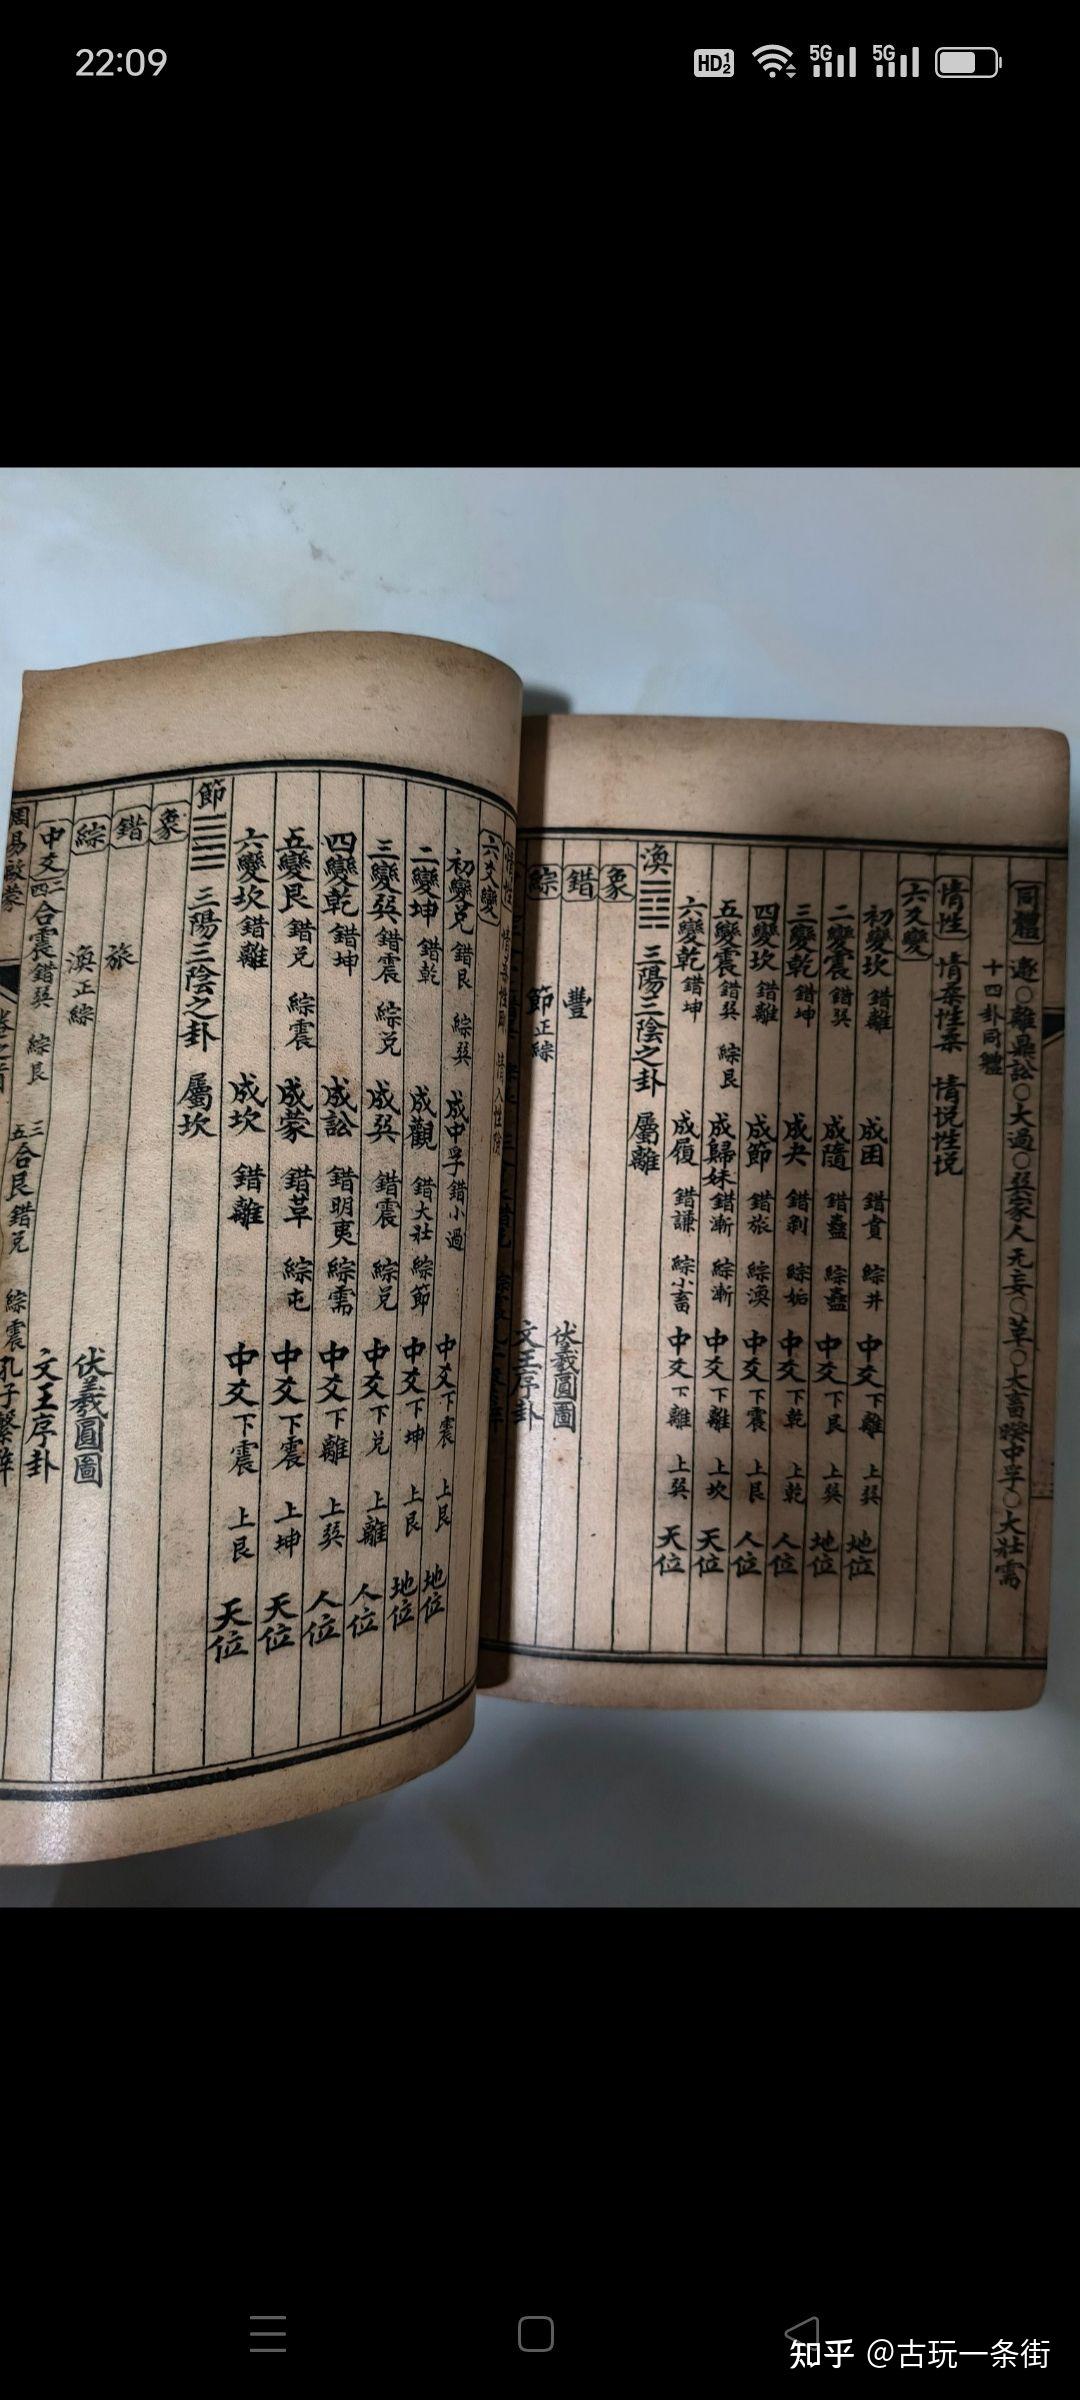 22:09
HD 1 2 5G 5G
同體 遯○離鼎訟○大過○巽家人无妄○革○大畜睽中孚○大壯需
十四卦同體
情性 情柔性柔 情悅性悅
六爻變
初變坎 錯離 成困 錯賁 綜井 中爻 下離 上巽 地位
二變震 錯巽 成隨 錯蠱 綜蠱 中爻 下艮 上巽 地位
三變乾 錯坤 成夬 錯剝 綜姤 中爻 下乾 上乾 人位
四變坎 錯離 成節 錯旅 綜渙 中爻 下震 上艮 人位
五變震 錯巽 綜艮 成歸妹 錯漸 綜漸 中爻 下離 上坎 天位
六變乾 錯坤 成履 錯謙 綜小畜 中爻 下離 上巽 天位
渙 三陽三陰之卦 屬離
象
錯 豐 伏羲圓圖
綜 節正綜 文王序卦
情性
六爻變
初變兌 錯艮 綜巽 成中孚 錯小過 中爻 下震 上艮 地位
二變坤 錯乾 成觀 錯大壯 綜節 中爻 下坤 上艮 地位
三變巽 錯震 綜兌 成巽 錯震 綜兌 中爻 下兌 上離 人位
四變乾 錯坤 成訟 錯明夷 綜需 中爻 下離 上巽 人位
五變艮 錯兌 綜震 成蒙 錯革 綜屯 中爻 下震 上坤 天位
六變坎 錯離 成坎 錯離 中爻 下震 上艮 天位
節 三陽三陰之卦 屬坎
象
錯 旅 伏羲圓圖
綜 渙正綜 文王序卦
中爻 二四合震 錯巽 綜艮 三五合艮 錯兌 綜震 孔子繫辭
周易啟蒙
知乎 @古玩一条街